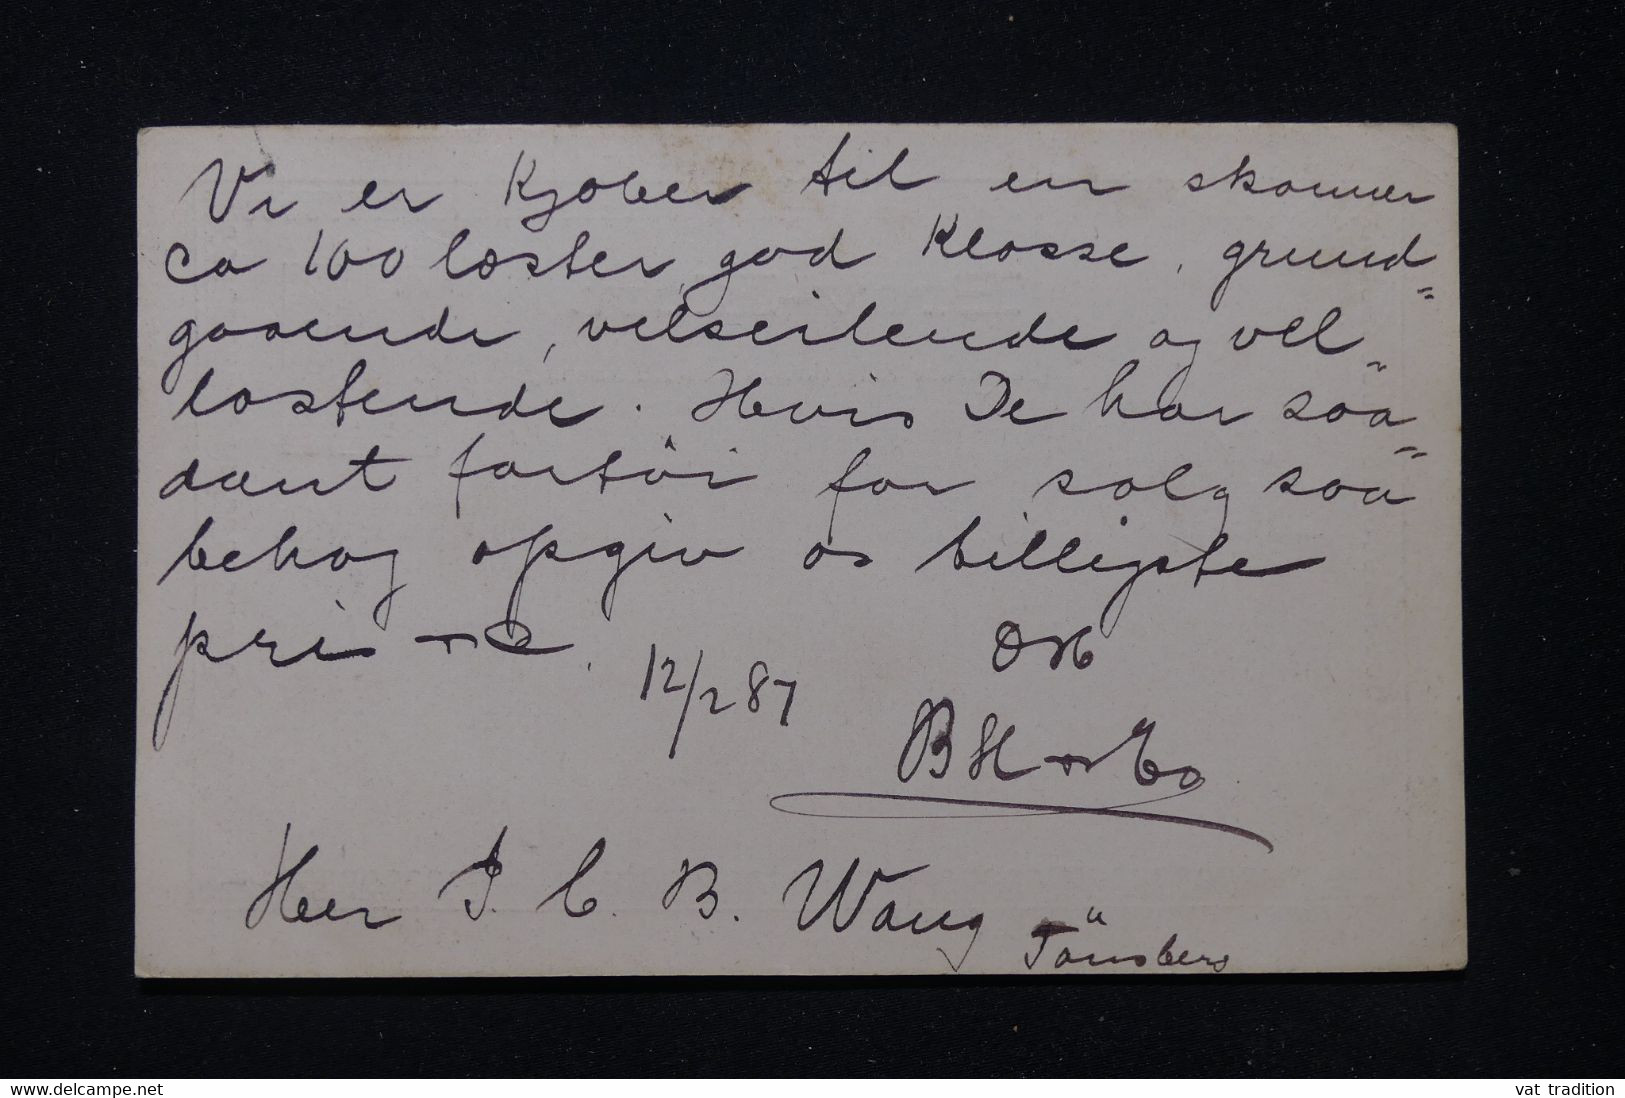 Vi er Kjöber til en skonner
ca 100 læster, god Klasse, grund=
gaaende, velseilende og vel=
lastende. Hvis De har saa=
dant fartöi for salg saa
behag opgiv os billigste
pris
12/2 87
B H & Co
Herr J. C. B. Wang
Tönsberg
vat tradition
www.delcampe.net